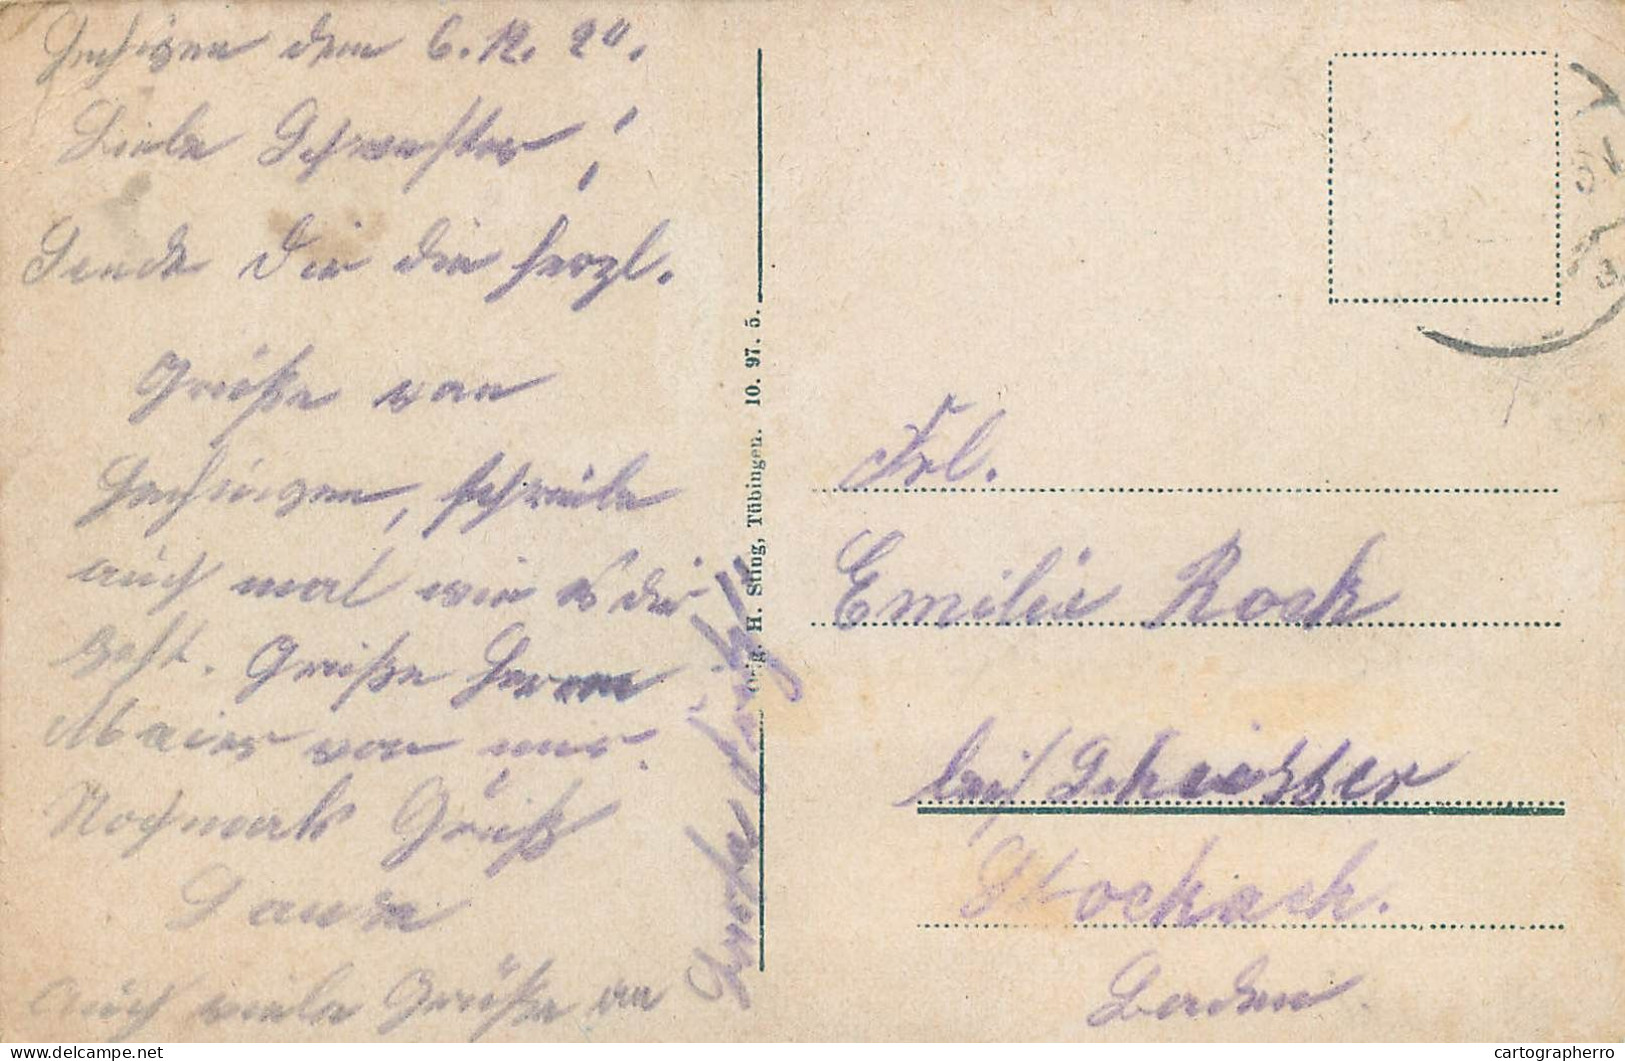 Hechingen den 6.12.20.
Liebe Schwester!
Sende Dir die herzl.
Grüße von
Hechingen, schreibe
auch mal wie es dir
geht. Grüße Herrn
Maier von mir.
Nochmals Grüß
auch viele Grüße an
Orig. H. Sting, Tübingen. 10. 97. 5.
Frl.
Emilie Rock
bei
Stockach.
Baden.
www.delcampe.net
cartographerro